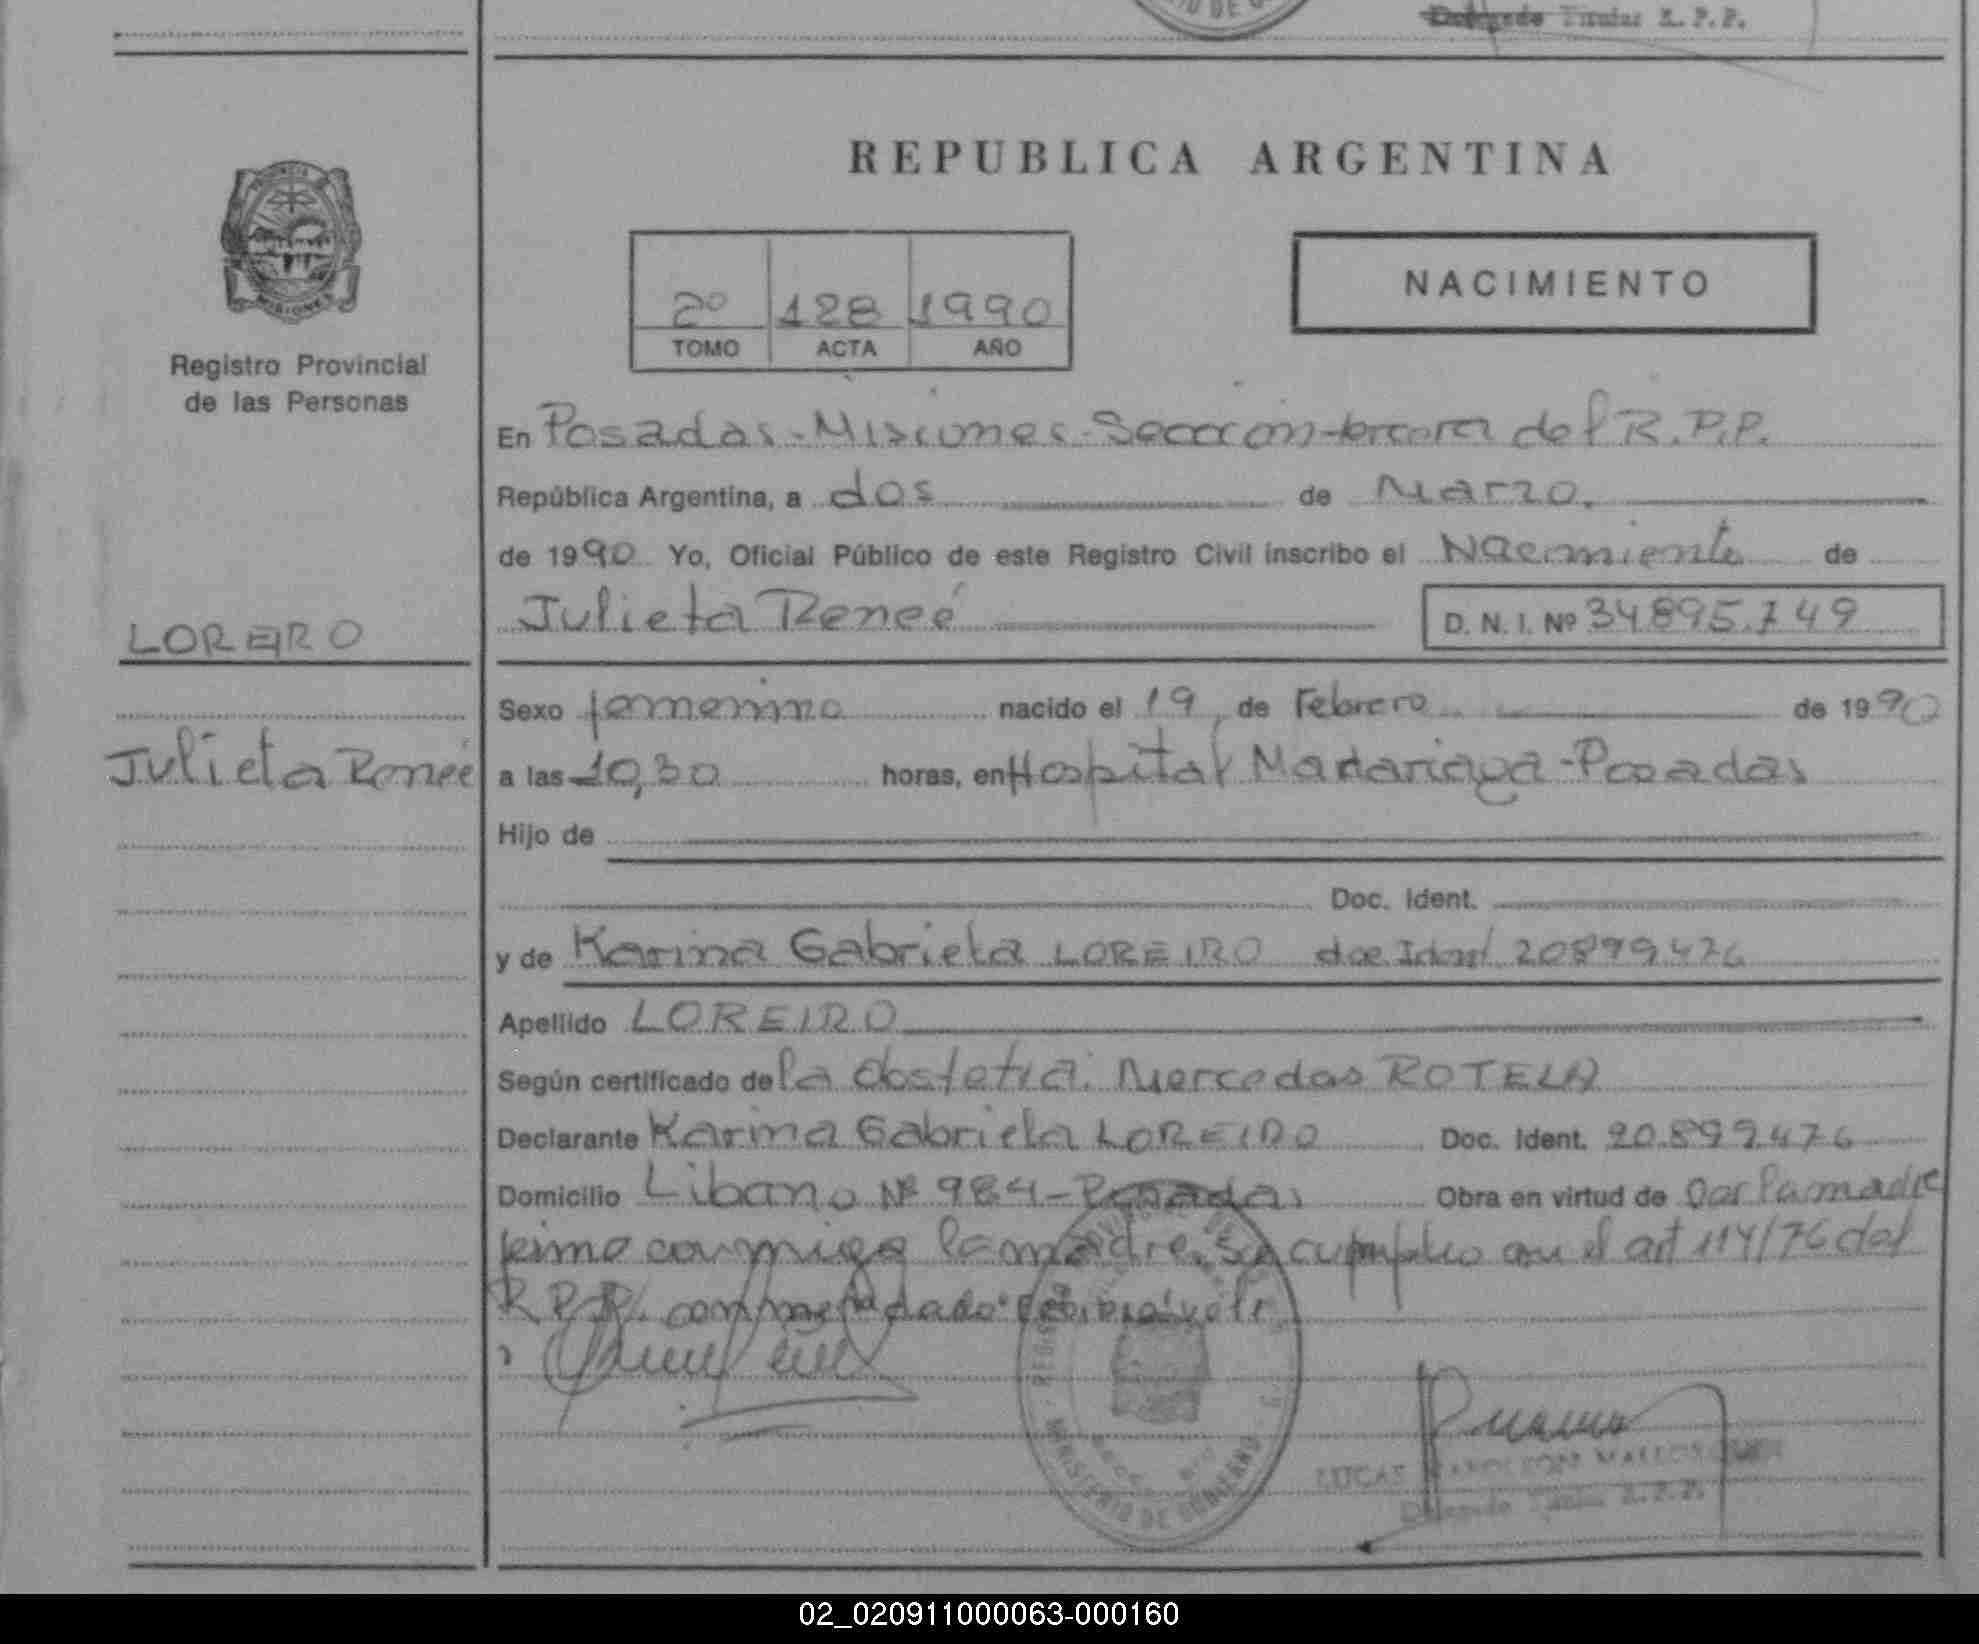 Delegado Titular R. P. P.
REPUBLICA ARGENTINA
NACIMIENTO
2º 128 1990
TOMO ACTA AÑO
Registro Provincial
de las Personas
MISIONES
En Posadas-Misiones-Sección tercera del R.P.P.
República Argentina, a dos de Marzo.
de 1990 Yo, Oficial Público de este Registro Civil inscribo el Nacimiento de
Julieta Reneé D. N. I. Nº 34.895.749
LOREIRO
Sexo femenino nacido el 19 de Febrero de 1990
Julieta Reneé
a las 10,30 horas, en Hospital Madariaga-Posadas
Hijo de
Doc. Ident.
y de Karina Gabriela LOREIRO doc Ident 20899476
Apellido LOREIRO
Según certificado de la Obstetra. Mercedes ROTELA
Declarante Karina Gabriela LOREIRO Doc. Ident. 20.899.476
Domicilio Libano Nº 984-Posadas Obra en virtud de ser la madre
firma conmigo la madre. Se cumplio con el art 114/76 del
R.P.P.
MINISTERIO DE GOBIERNO
LUCAS NAPOLEON
Delegado Titular R.P.P.
02_020911000063-000160